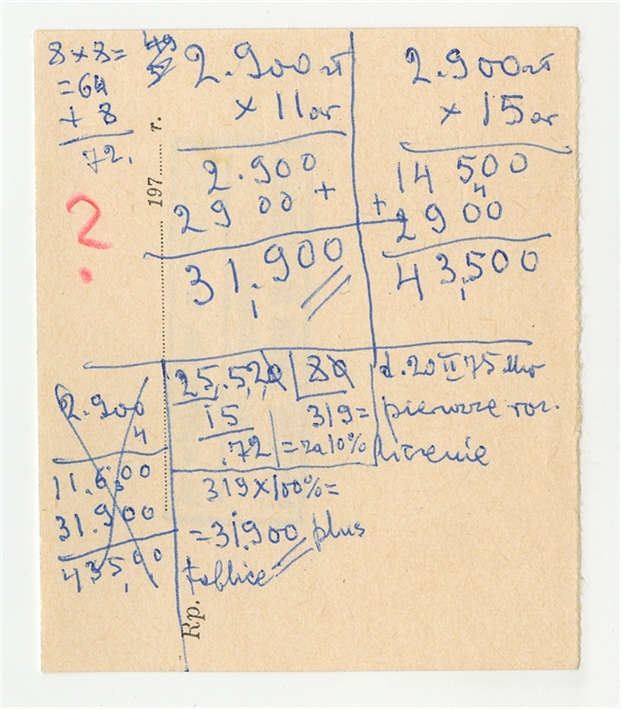 8 x 8 =
= 64
+ 8
72.
2.900 zł
x 11 ar
2.900
29 00 +
31.900
2.900 zł
x 15 ar
14 500
+ 2900
43.500
197........ r.
?
2.900
4
11.600
31.900
435,00
25.520 | 80
15 319 =
.72 = za 10%
319 x 100% =
= 31.900 plus
tablice
d. 20 II 75
pierwsze roz.
liczenie
Rp.